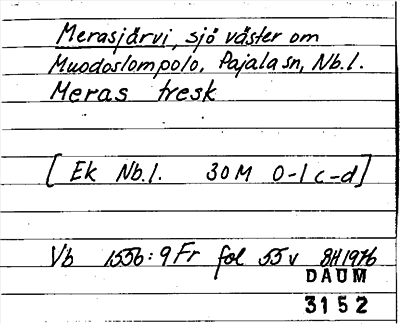 Merasjärvi, sjö väster om
Muodoslompolo, Pajala sn, Nb.l.
Meras tresk
[Ek Nb.l. 30M 0-1 c-d]
Vb 1556:9 Fr fol 55v BH1976
DAUM
3152